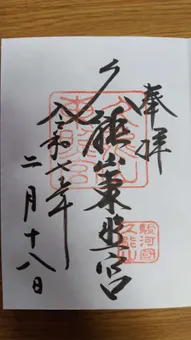 奉拝
久能山東照宮
駿河国
久能山
令和七年
二月十八日